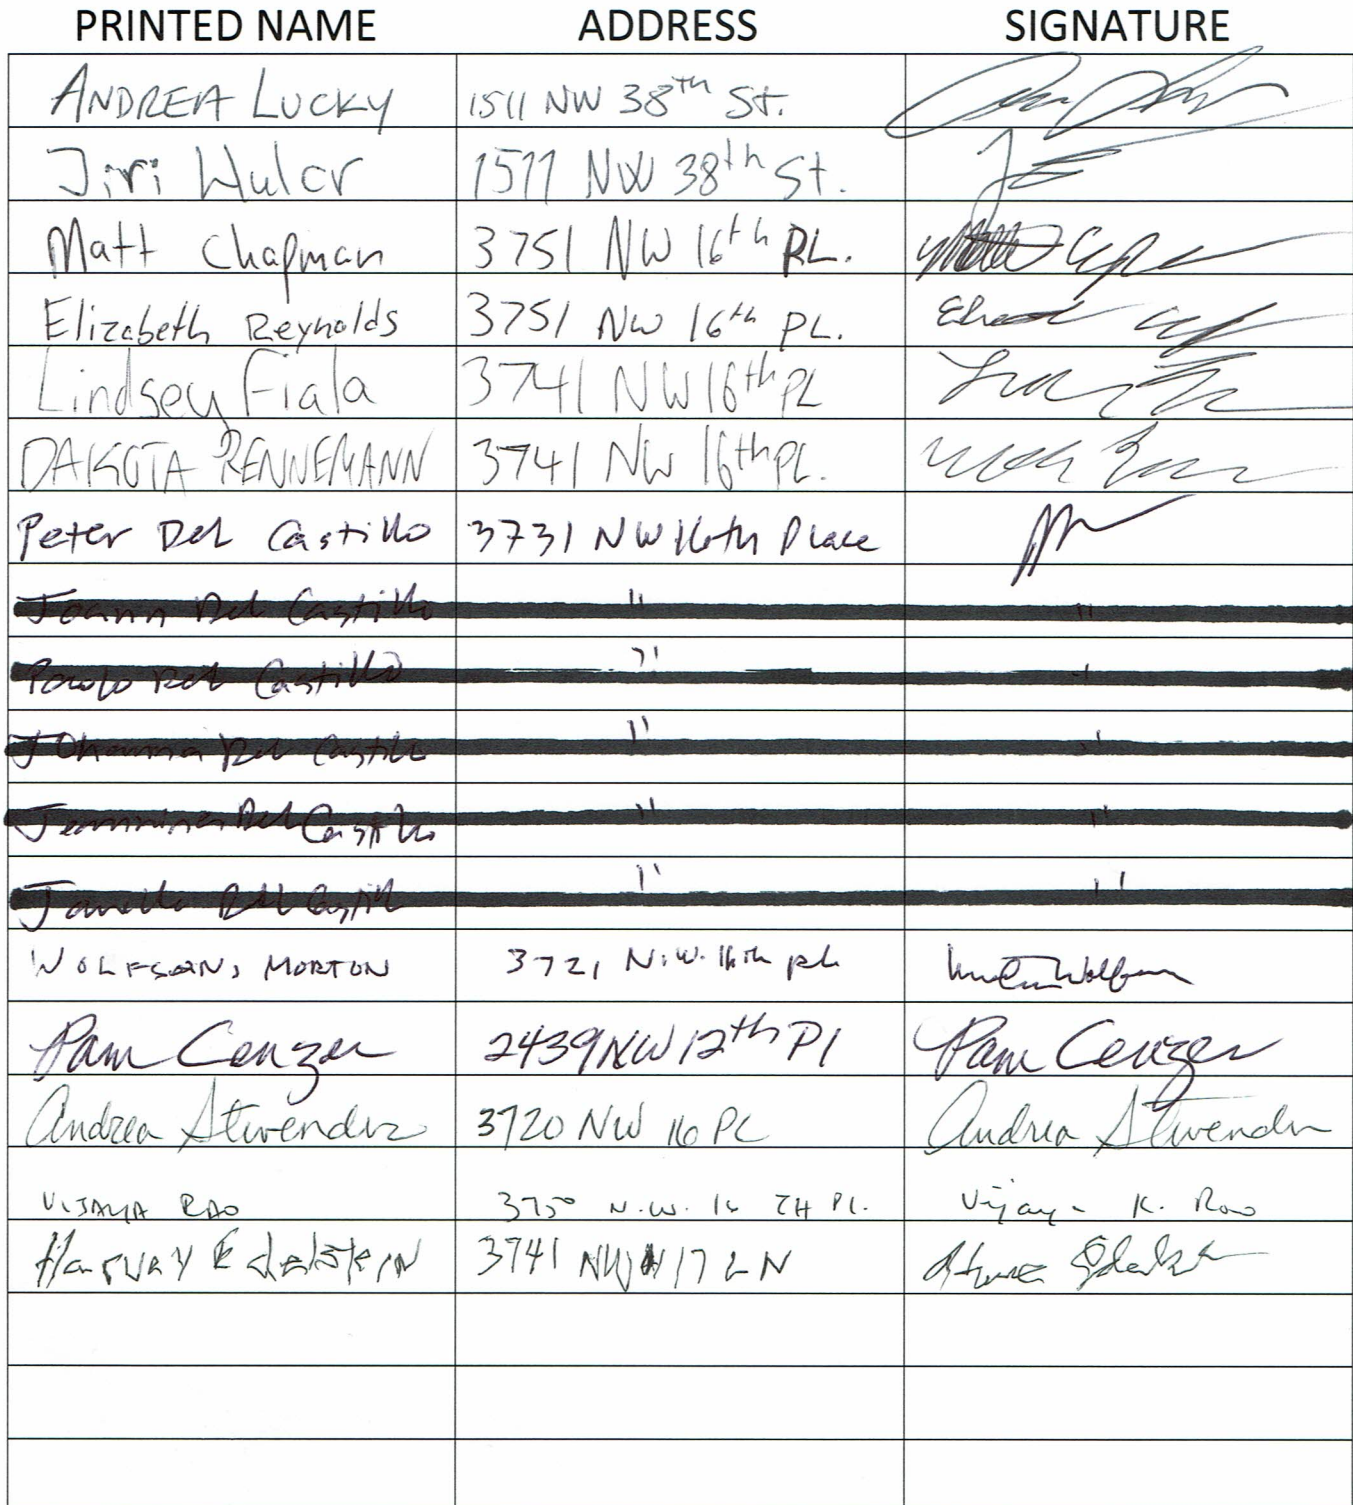 PRINTED NAME ADDRESS SIGNATURE
ANDREA LUCKY 1511 NW 38th St.
Jiri Hulcr 1511 NW 38th St.
Matt Chapman 3751 NW 16th PL.
Elizabeth Reynolds 3751 NW 16th PL.
Lindsey Fiala 3741 NW 16th PL
DAKOTA RENNEMANN 3741 NW 16th PL.
Peter Del Castillo 3731 NW 16th Place
Joann Del Castillo " "
Paolo Del Castillo " "
Johanna Del Castillo " "
Del Castillo " "
Del Castillo " "
WOLFSON, MORTON 3721 N.W. 16th PL Wolfson
Pam Cenzer 2439 NW 12th Pl Pam Cenzer
Andrea 3720 NW 16 PL Andrea
VIJAYA RAO 3750 N.W. 16 TH PL. Vijaya K. Rao
Harvey Edelstein 3741 NW 17 LN